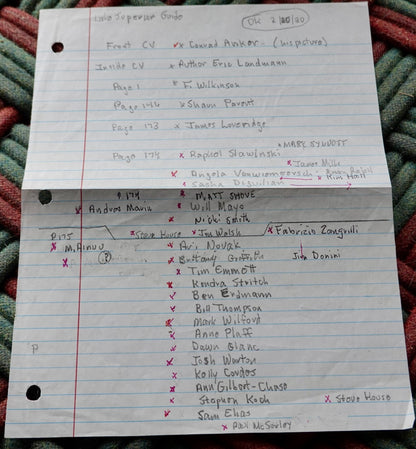 Lake Superior Guide
OK 2/20/20
Front CV x Conrad Anker (his picture)
Inside CV x Author Eric Landmann
Page 1 x F. Wilkinson
Page 146 x Shaun Parent
Page 173 x James Loveridge
Page 175 x Raphael Slawinski x MARK SYNNOTT
x Angela Vanwiemeersch x James Mills
x Sasha Digiulian x Kim Hall
P 174 x MATT SHOVE
x Andres Marin x Will Mayo
x Nick Smith
P 175 x Steve House x Jim Walsh x Fabrizio Zangrilli
x M. Ainuu x Ari Novak
(?) x Brittany Griffith Jim Donini
x Tim Emmett
x Kendra Stritch
x Ben Erdmann
x Bill Thompson
x Mark Wilford
x Anne Pfaff
x Dawn Glanc
x Josh Wharton
x Kelly Cordes
x Ann Gilbert-Chase
x Stephen Koch x Steve House
x Sam Elias
x Paul McSorley
P